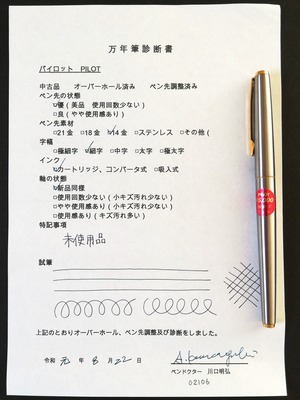 万年筆診断書
パイロット PILOT
中古品 オーバーホール済み ペン先調整済み
ペン先の状態
☑優(美品 使用回数少ない)
□良(やや使用感あり)
ペン先素材
□21金 □18金 ☑14金 □ステンレス □その他(
字幅
□極細字 ☑細字 □中字 □太字 □極太字
インク
☑カートリッジ、コンバータ式 □吸入式
軸の状態
☑新品同様
□使用回数少ない(小キズ汚れ少ない)
□やや使用感あり(小キズ汚れ少ない)
□使用感あり(キズ汚れ多い)
特記事項
未使用品
試筆
上記のとおりオーバーホール、ペン先調整及び診断をしました。
令和 元 年 8 月 22 日
ペンドクター 川口明弘
02106
PILOT